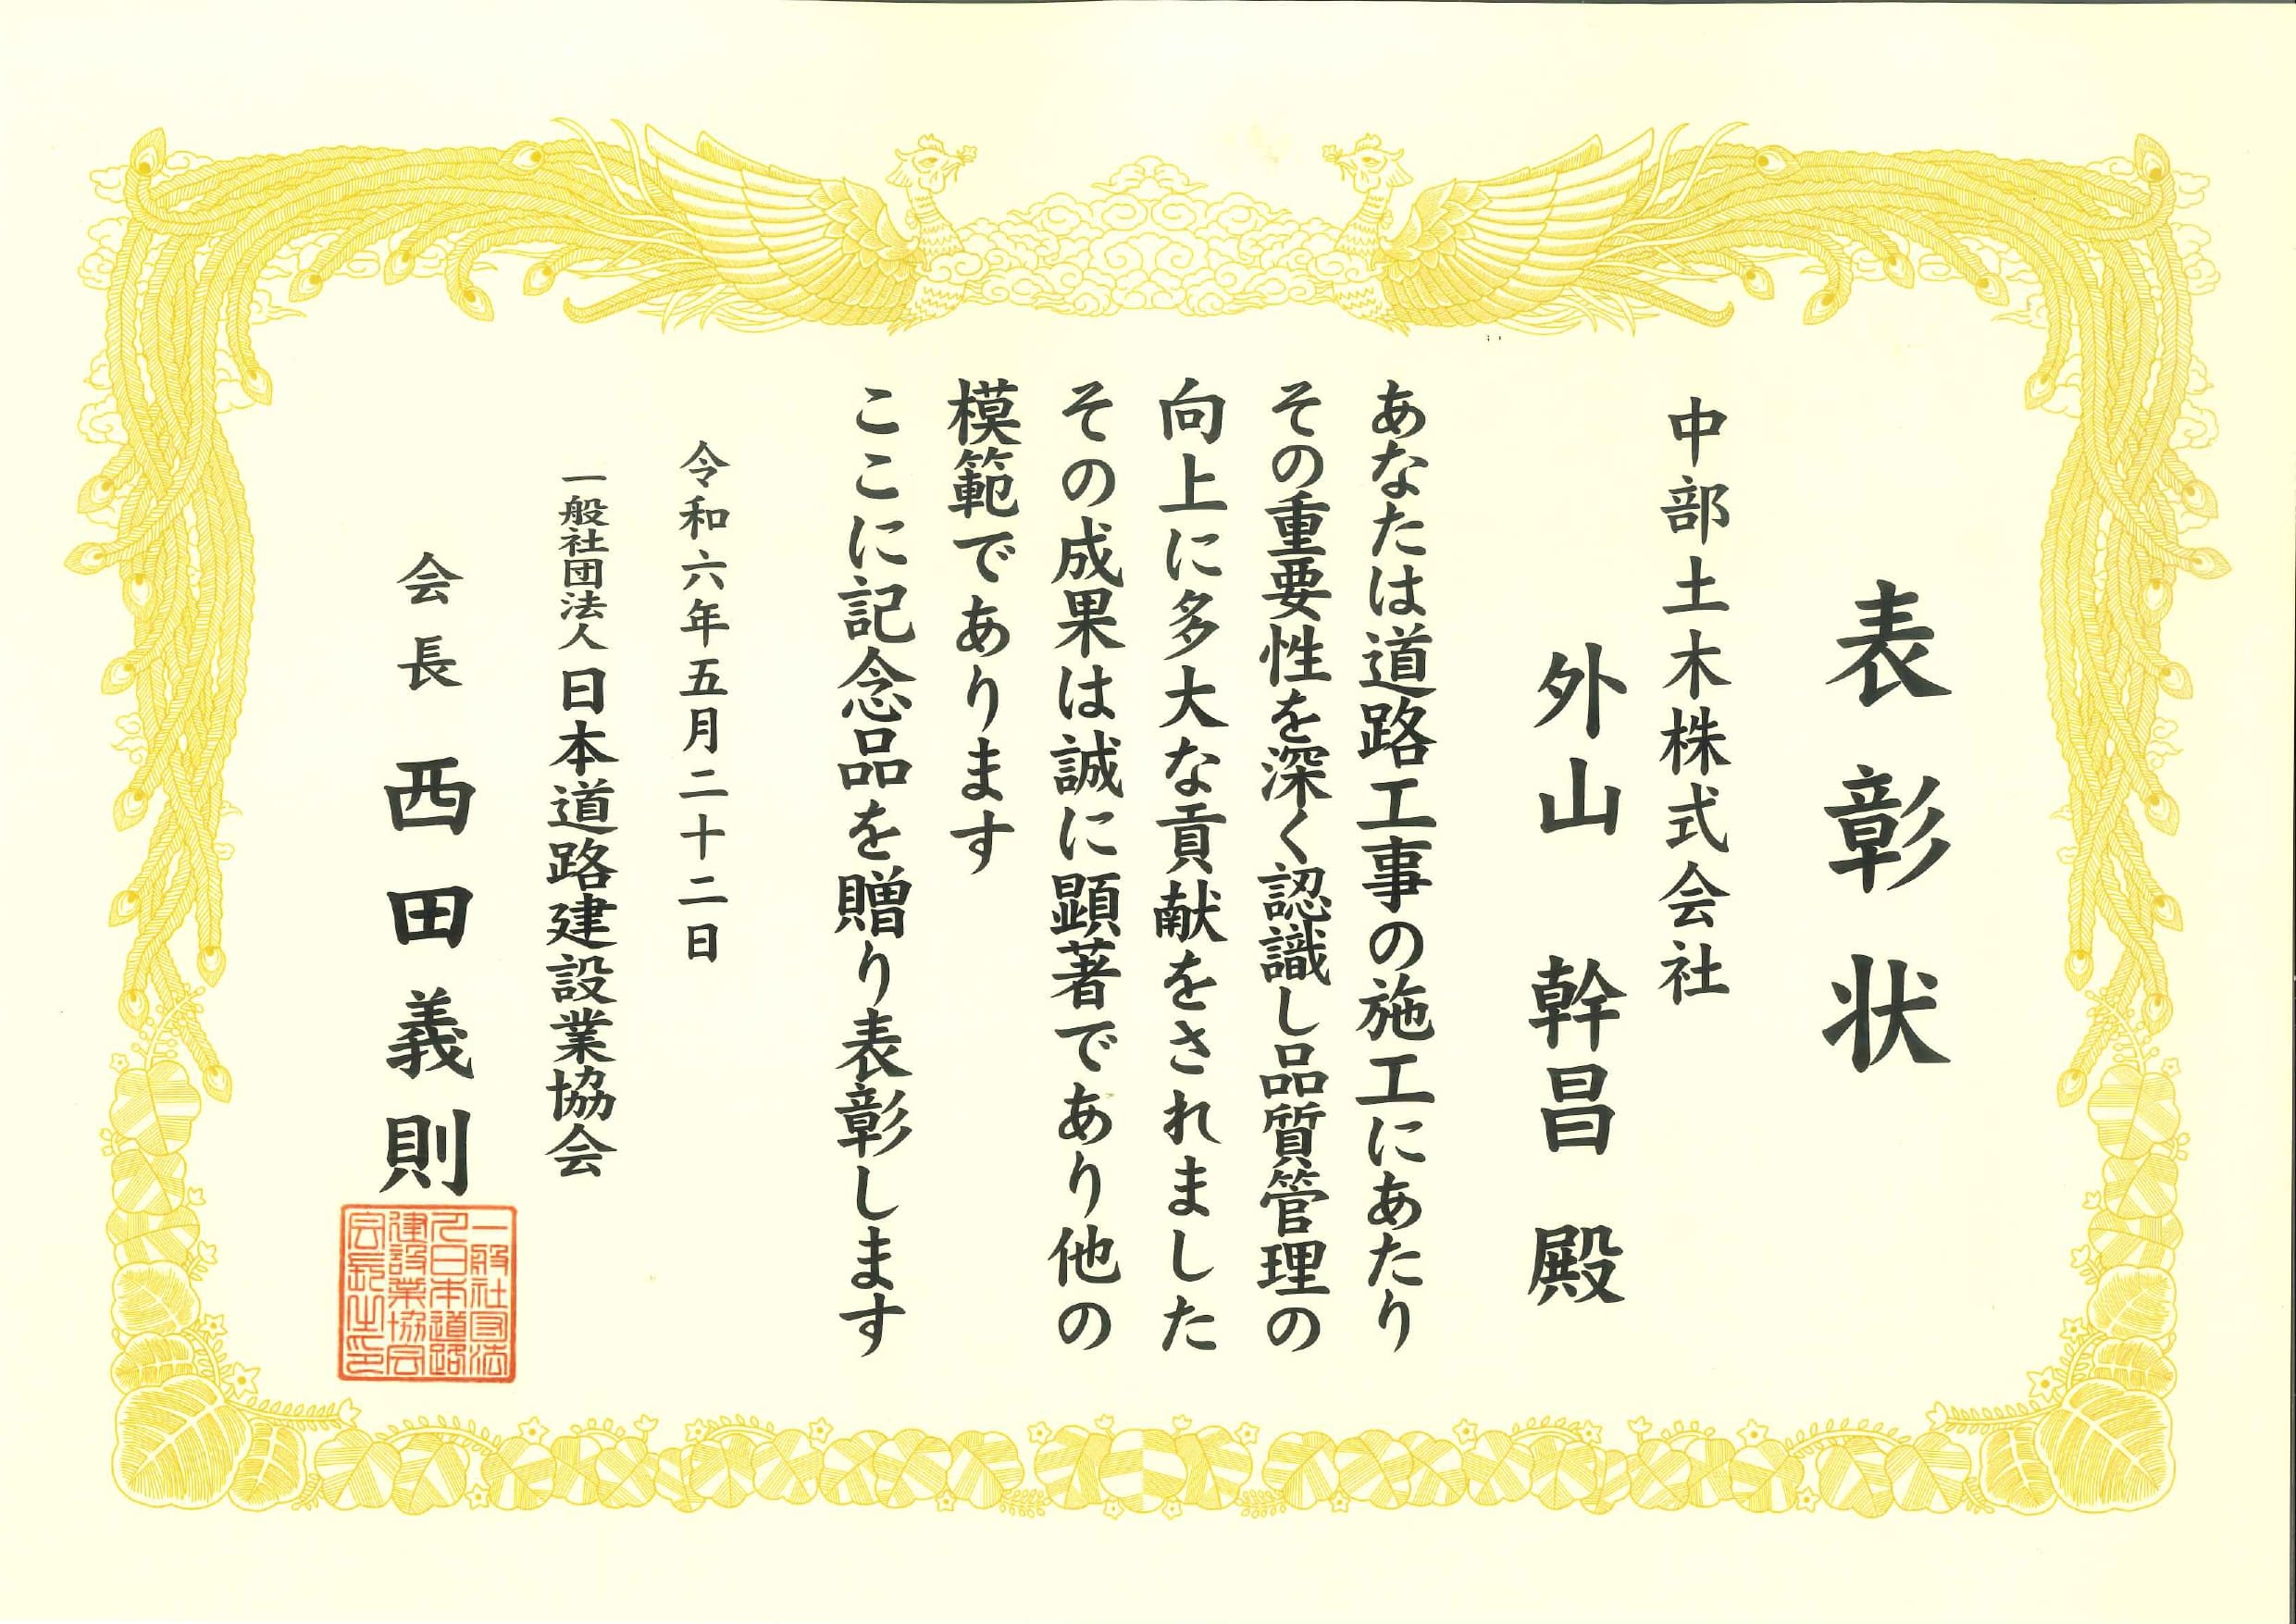 表彰状
中部土木株式会社
外山 幹昌 殿
あなたは道路工事の施工にあたり
その重要性を深く認識し品質管理の
向上に多大な貢献をされました
その成果は誠に顕著であり他の
模範であります
ここに記念品を贈り表彰します
令和六年五月二十二日
一般社団法人日本道路建設業協会
会長 西田義則
一般社団法
人日本道路
建設業協会
会長之印